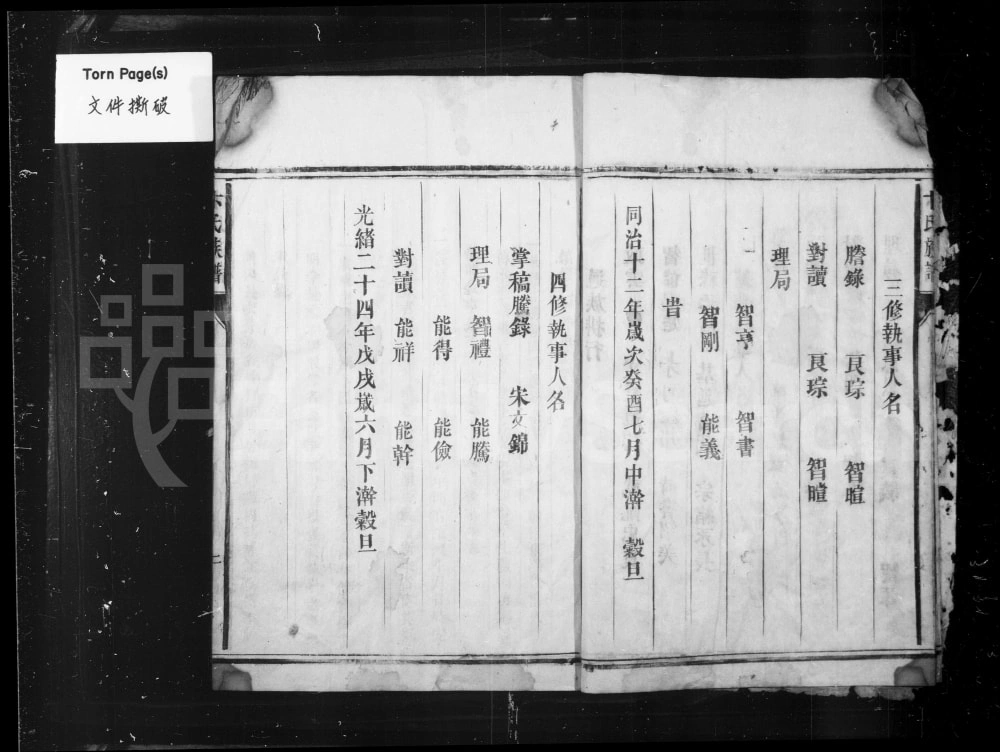 Torn Page(s)
文件撕破
三修執事人名
謄錄 良琮 智暄
對讀 良琮 智暄
理局
智亨 智書
智剛 能義
旹
同治十二年歲次癸酉七月中澣 穀旦
四修執事人名
掌稿騰錄 宋文錦
理局 智禮 能騰
能得 能儉
對讀 能祥 能幹
光緒二十四年戊戌歲六月下澣穀旦
氏族譜